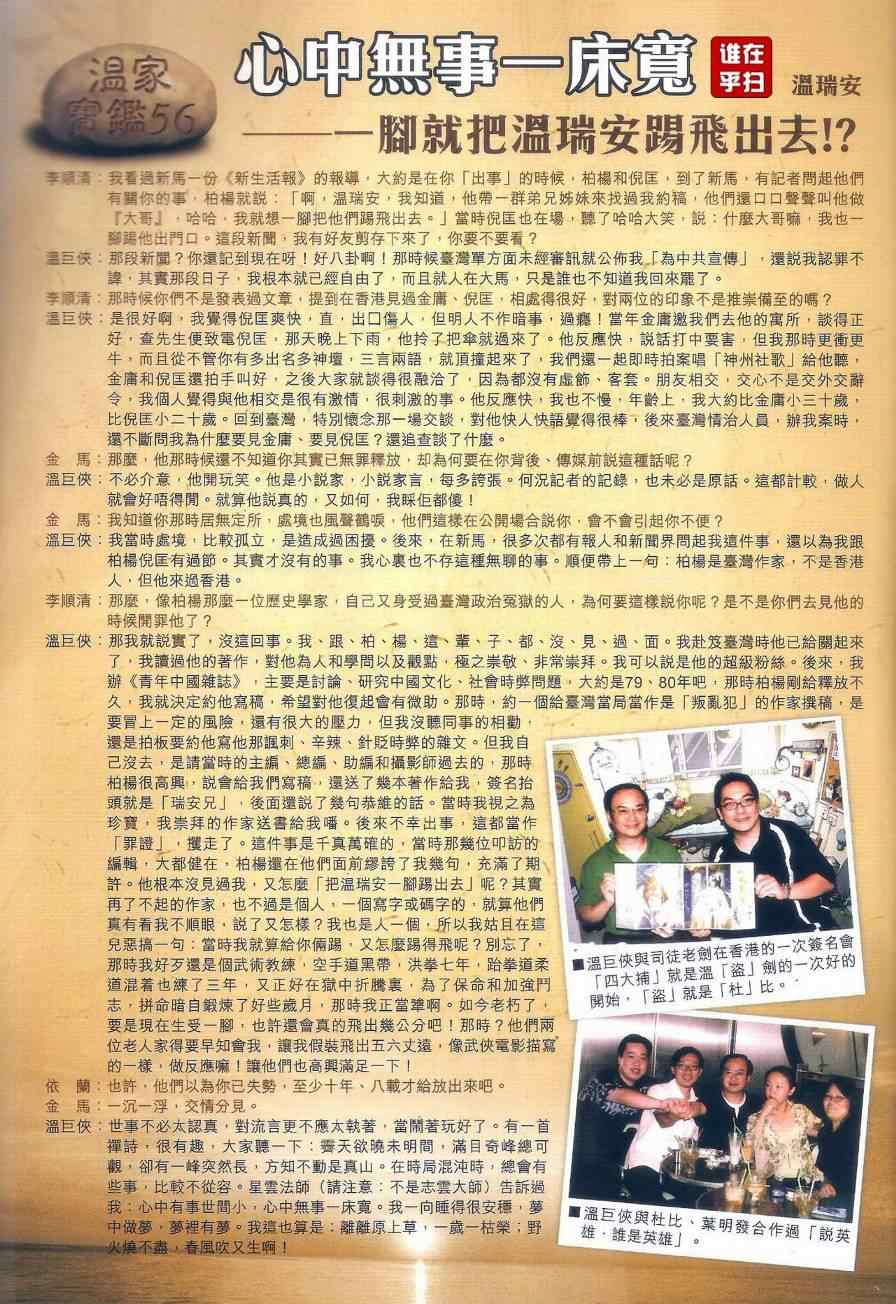 溫家
寶鑑56
心中無事一床寬
谁在
乎扫
溫瑞安
——一腳就把溫瑞安踢飛出去!?
李順清：我看過新馬一份《新生活報》的報導，大約是在你「出事」的時候，柏楊和倪匡，到了新馬，有記者問起他們
有關你的事，柏楊就說：「啊，溫瑞安，我知道，他帶一群弟兄姊妹來找過我約稿，他們還口口聲聲叫他做
『大哥』，哈哈，我就想一腳把他們踢飛出去。」當時倪匡也在場，聽了哈哈大笑，說：什麼大哥嘛，我也一
腳踢他出門口。這段新聞，我有好友剪存下來了，你要不要看？
溫巨俠：那段新聞？你還記到現在呀！好八卦啊！那時候臺灣單方面未經審訊就公佈我「為中共宣傳」，還說我認罪不
諱，其實那段日子，我根本就已經自由了，而且就人在大馬，只是誰也不知道我回來罷了。
李順清：那時候你們不是發表過文章，提到在香港見過金庸、倪匡，相處得很好，對兩位的印象不是推崇備至的嗎？
溫巨俠：是很好啊，我覺得倪匡爽快，直，出口傷人，但明人不作暗事，過癮！當年金庸邀我們去他的寓所，談得正
好，查先生便致電倪匡，那天晚上下雨，他拎了把傘就過來了。他反應快，說話打中要害，但我那時更衝更
牛，而且從不管你有多出名多神壇，三言兩語，就頂撞起來了，我們還一起即時拍案唱「神州社歌」給他聽，
金庸和倪匡還拍手叫好，之後大家就談得很融洽了，因為都沒有虛飾、客套。朋友相交，交心不是交外交辭
令，我個人覺得與他相交是很有激情，很刺激的事。他反應快，我也不慢，年齡上，我大約比金庸小三十歲，
比倪匡小二十歲。回到臺灣，特別懷念那一場交談，對他快人快語覺得很棒，後來臺灣情治人員，辦我案時，
還不斷問我為什麼要見金庸、要見倪匡？還追查談了什麼。
金　馬：那麼，他那時候還不知道你其實已無罪釋放，却為何要在你背後、傳媒前說這種話呢？
溫巨俠：不必介意，他開玩笑。他是小說家，小說家言，每多誇張。何況記者的記錄，也未必是原話。這都計較，做人
就會好唔得閒。就算他說真的，又如何，我睬佢都傻！
金　馬：我知道你那時居無定所，處境也風聲鶴唳，他們這樣在公開場合說你，會不會引起你不便？
溫巨俠：我當時處境，比較孤立，是造成過困擾。後來，在新馬，很多次都有報人和新聞界問起我這件事，還以為我跟
柏楊倪匡有過節。其實才沒有的事。我心裏也不存這種無聊的事。順便帶上一句：柏楊是臺灣作家，不是香港
人，但他來過香港。
李順清：那麼，像柏楊那麼一位歷史學家，自己又身受過臺灣政治冤獄的人，為何要這樣說你呢？是不是你們去見他的
時候開罪他了？
溫巨俠：那我就說實了，沒這回事。我、跟、柏、楊、這、輩、子、都、沒、見、過、面。我赴笈臺灣時他已給關起來
了，我讀過他的著作，對他為人和學問以及觀點，極之崇敬、非常崇拜。我可以說是他的超級粉絲。後來，我
辦《青年中國雜誌》，主要是討論、研究中國文化、社會時弊問題，大約是79、80年吧，那時柏楊剛給釋放不
久，我就決定約他寫稿，希望對他復起會有微助。那時，約一個給臺灣當局當作是「叛亂犯」的作家撰稿，是
要冒上一定的風險，還有很大的壓力，但我沒聽同事的相勸，
還是拍板要約他寫他那諷刺、辛辣、針貶時弊的雜文。但我自
己沒去，是請當時的主編、總編、助編和攝影師過去的，那時
柏楊很高興，說會給我們寫稿，還送了幾本著作給我，簽名抬
頭就是「瑞安兄」，後面還說了幾句恭維的話。當時我視之為
珍寶，我崇拜的作家送書給我嘛。後來不幸出事，這都當作
「罪證」，攫走了。這件事是千真萬確的，當時那幾位叩訪的
編輯，大都健在，柏楊還在他們面前繆誇了我幾句，充滿了期
許。他根本沒見過我，又怎麼「把溫瑞安一腳踢出去」呢？其實
再了不起的作家，也不過是個人，一個寫字或碼字的，就算他們
真有看我不順眼，說了又怎樣？我也是人一個，所以我姑且在這
兒惡搞一句：當時我就算給你倆踢，又怎麼踢得飛呢？別忘了，
那時我好歹還是個武術教練，空手道黑帶，洪拳七年，跆拳道柔
道混着也練了三年，又正好在獄中折騰裏，為了保命和加強鬥
志，拼命暗自鍛煉了好些歲月，那時我正當犟啊。如今老朽了，
要是現在生受一腳，也許還會真的飛出幾公分吧！那時？他們兩
位老人家得要早知會我，讓我假裝飛出五六丈遠，像武俠電影描寫
的一樣，做反應嘛！讓他們也高興滿足一下！
依　蘭：也許，他們以為你已失勢，至少十年、八載才給放出來吧。
金　馬：一沉一浮，交情分見。
溫巨俠：世事不必太認真，對流言更不應太執著，當鬧著玩好了。有一首
禪詩，很有趣，大家聽一下：霽天欲曉未明間，滿目奇峰總可
觀，卻有一峰突然長，方知不動是真山。在時局混沌時，總會有
些事，比較不從容。星雲法師（請注意：不是志雲大師）告訴過
我：心中有事世間小，心中無事一床寬。我一向睡得很安穩，夢
中做夢，夢裡有夢。我這也算是：離離原上草，一歲一枯榮；野
火燒不盡，春風吹又生啊！
■溫巨俠與司徒老劍在香港的一次簽名會
「四大捕」就是溫「盜」劍的一次好的
開始，「盜」就是「杜」比。
■溫巨俠與杜比、葉明發合作過「說英
雄‧誰是英雄」。